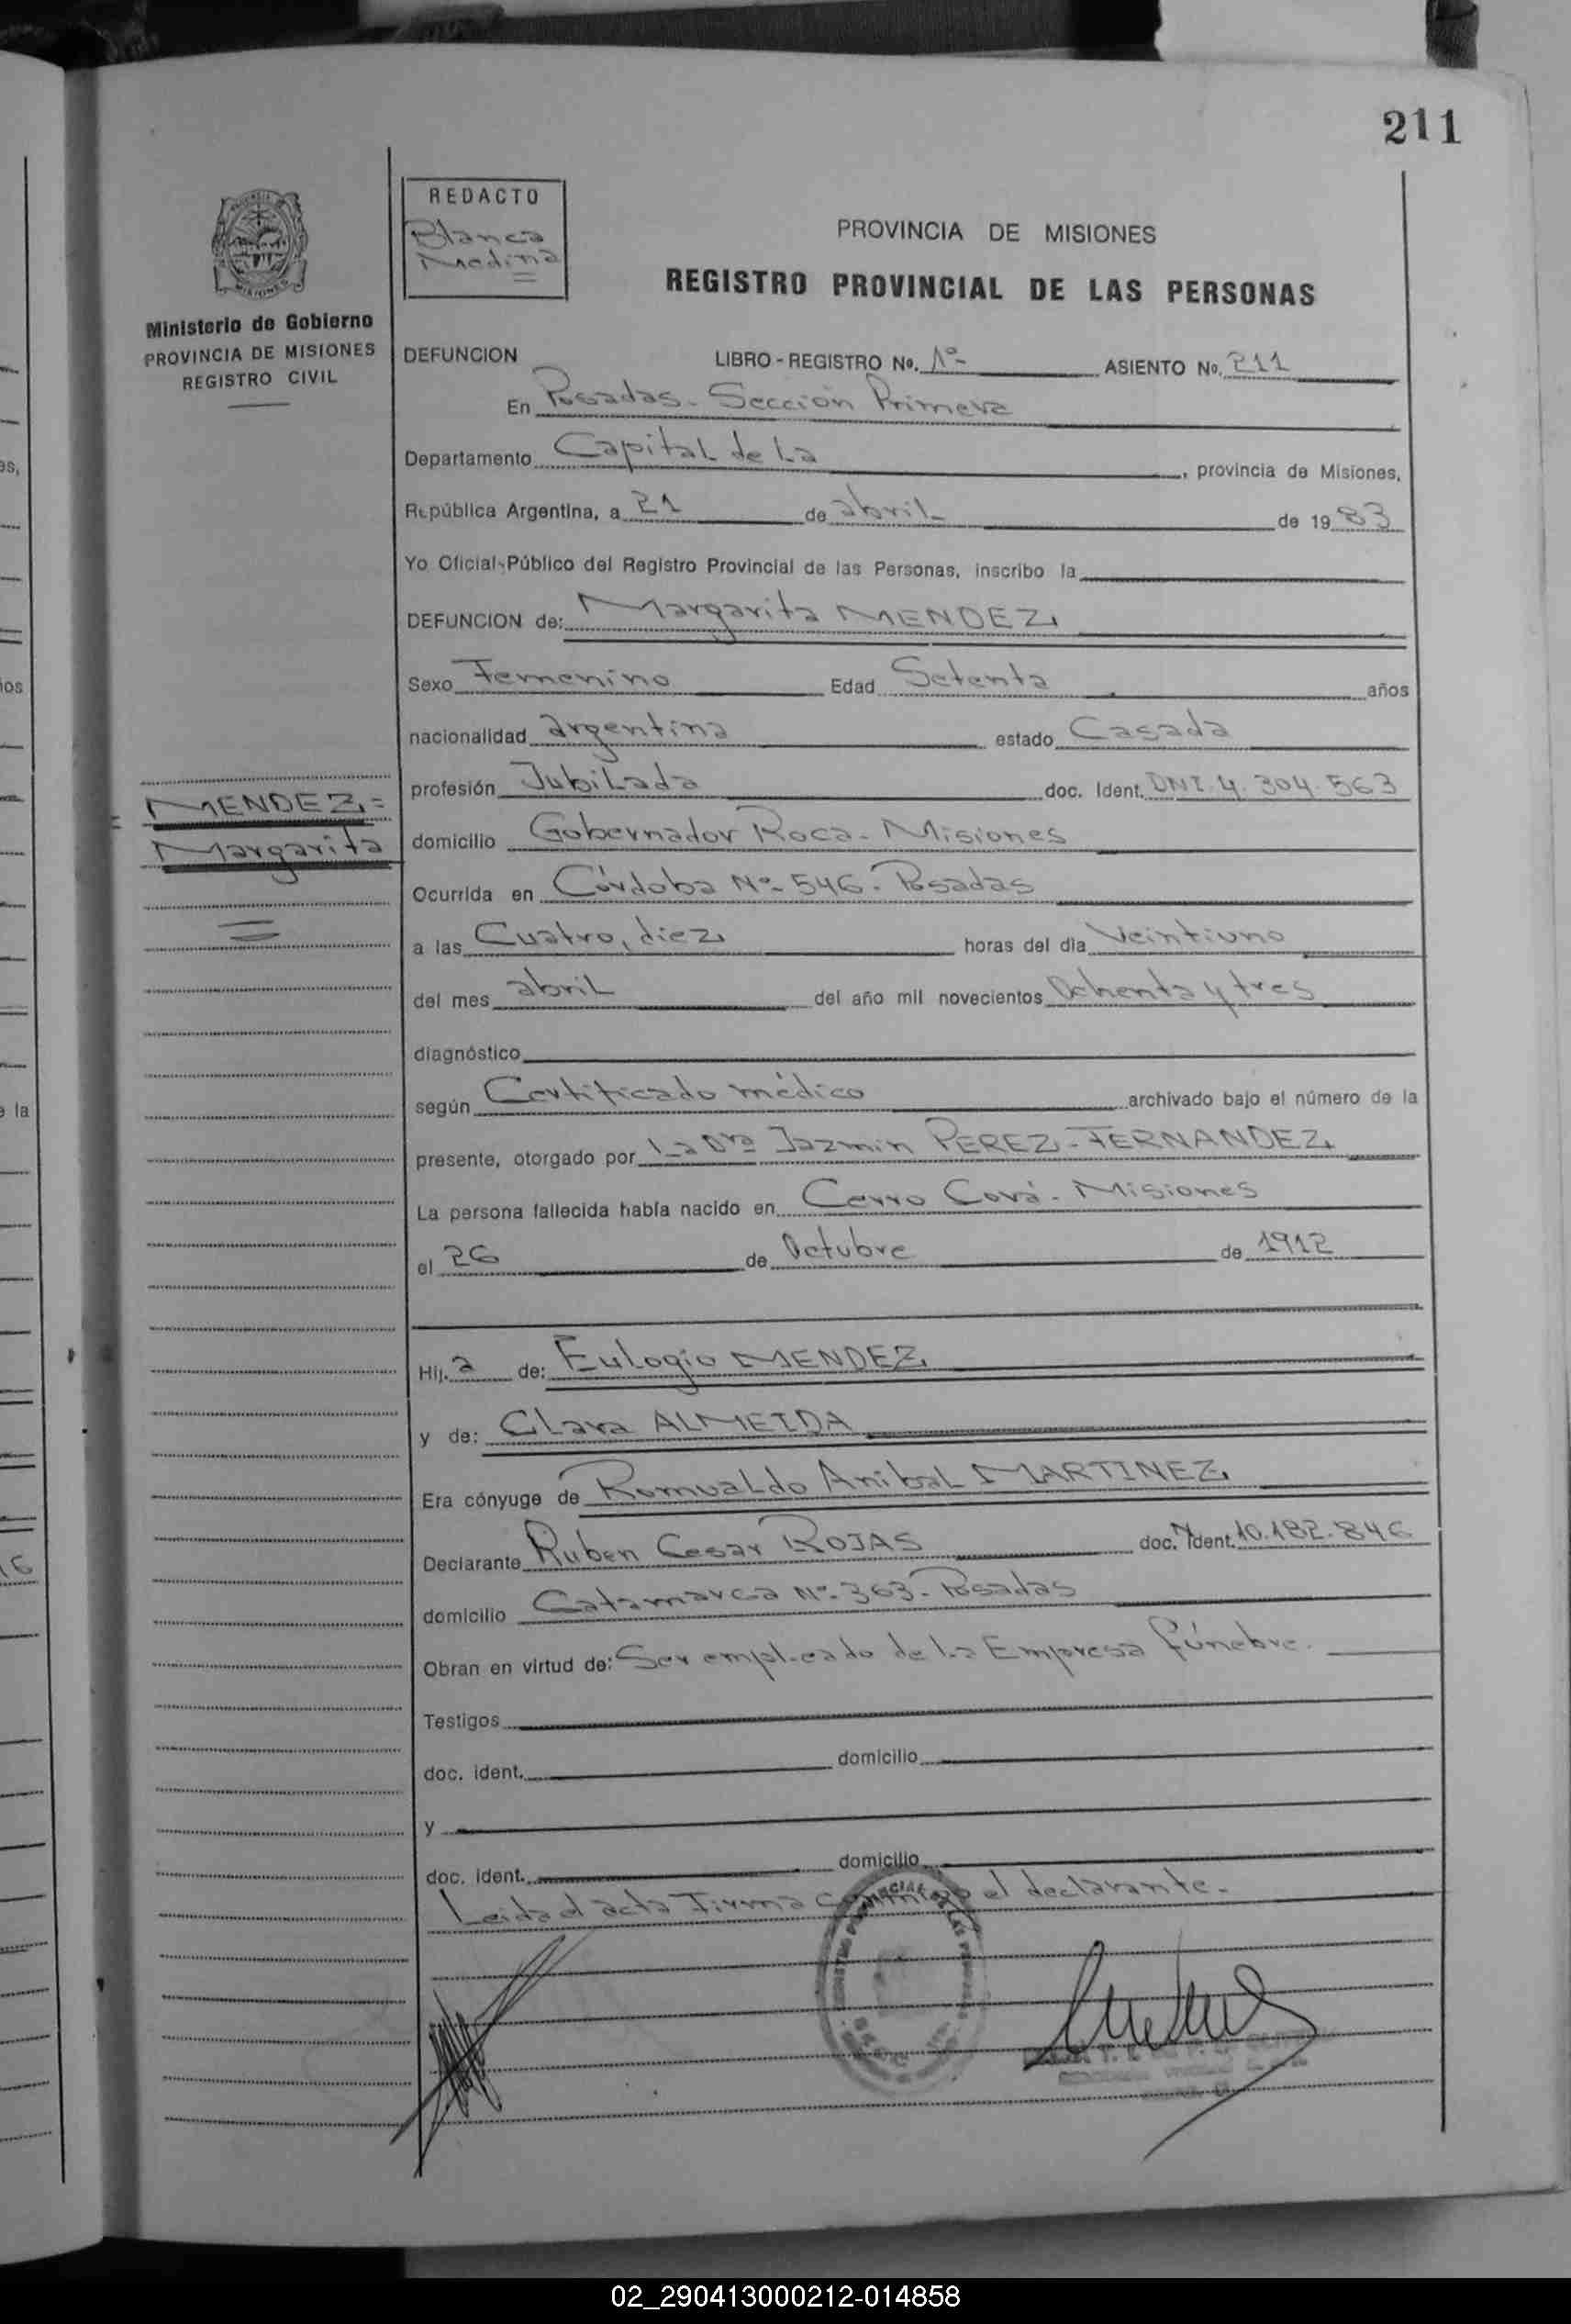 211
REDACTO
Blanca
Medina
PROVINCIA DE MISIONES
REGISTRO PROVINCIAL DE LAS PERSONAS
MISIONES
Ministerio de Gobierno
PROVINCIA DE MISIONES
REGISTRO CIVIL
DEFUNCION LIBRO - REGISTRO No. 1º- ASIENTO No. 211
En Posadas - Sección Primera
Departamento Capital de La, provincia de Misiones,
República Argentina, a 21 de abril de 1983
Yo Oficial Público del Registro Provincial de las Personas, inscribo la
DEFUNCION de: Margarita MENDEZ
Sexo Femenino Edad Setenta años
nacionalidad argentina estado Casada
profesión Jubilada doc. Ident. DNI. 4. 304. 563
MENDEZ =
Margarita
domicilio Gobernador Roca - Misiones
Ocurrida en Córdoba Nº- 546 - Posadas
a las Cuatro, diez horas del día Veintiuno
del mes abril del año mil novecientos Ochenta y tres
diagnóstico
según Certificado médico archivado bajo el número de la
presente, otorgado por La Dra Jazmin PEREZ - FERNANDEZ
La persona fallecida había nacido en Cerro Corá - Misiones
el 26 de Octubre de 1912
Hij. a de: Eulogio MENDEZ
y de: Clara ALMEIDA
Era cónyuge de Romualdo Anibal MARTINEZ
Declarante Ruben Cesar ROJAS doc. Ident. 10.182.846
domicilio Catamarca Nº- 363 - Posadas
Obran en virtud de: Ser empleado de la Empresa fúnebre.
Testigos
doc. ident. domicilio
y
doc. ident. domicilio
Leida el acta firma conmigo el declarante.-
02_290413000212-014858